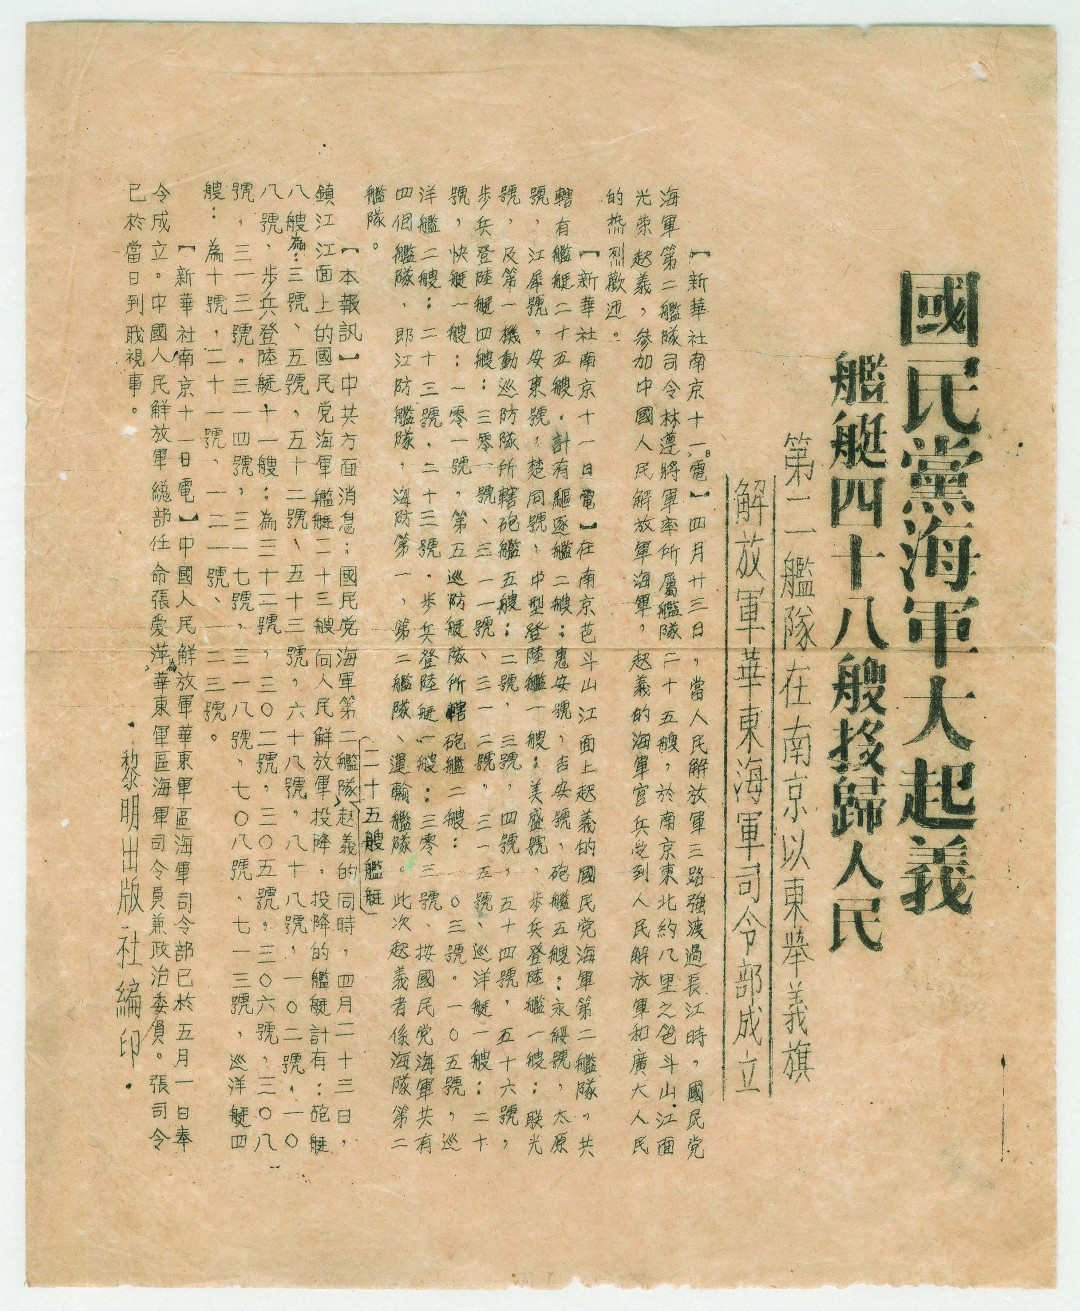 國民黨海軍大起義
艦艇四十八艘投歸人民
第二艦隊在南京以東舉義旗
解放軍華東海軍司令部成立
【新華社南京十一電】四月廿三日，當人民解放軍三路強渡過長江時，國民党
海軍第二艦隊司令林遵將軍率所屬艦隊二十五艘，於南京東北約八里之笆斗山江面
光荣起義，參加中國人民解放軍海軍，起義的海軍官兵受到人民解放軍和廣大人民
的热烈歡迎。
【新華社南京十一日電】在南京芭斗山江面上起義的國民党海軍第二艦隊。共
轄有艦艇二十五艘，計有驅逐艦二艘：惠安號，吉安號，砲艦五艘：永綏號，太原
號，江犀號，安東號，楚同號，中型登陸艦一艘：美盛號，步兵登陸艦一艘：联光
號，及第一機動巡防隊所轄砲艦五艘：二號，三號，四號，五十四號，五十六號，
步兵登陸艇四艘：三零一號、三一一號、三一二號，三一五號、巡洋艇一艘：二十
號，快艇一艘：一零一號，第五巡防艇隊所轄砲艦二艘：一〇三號。一〇五號，巡
洋艦二艘：二十三號．二十三號．步兵登陸艇一艘：三零三號　按國民党海軍共有
四個艦隊，即江防艦隊，海防第一、第二艦隊、運輸艦隊。此次起義者係海隊第二
艦隊。
【本報訊】中共方面消息：國民党海軍第二艦隊（二十五艘艦艇）起義的同時，四月二十三日，
鎮江江面上的國民党海軍艦艇二十三艘向人民解放軍投降。投降的艦艇計有：砲艇
八艘為：三號、五號，五十二號、五十三號，六十八號，八十八號，一〇二號，一〇
八號，步兵登陸艇十一艘：為三十二號，三〇二號，三〇五號，三〇六號，三〇八
號，三一三號。三一四號，三一七號，三一八號，七〇八號、七一三號，巡洋艇四
艘：為十號，二十一號、一二一號、一二三號。
【新華社南京十一日電】中國人民解放軍華東軍區海軍司令部已於五月一日奉
令成立。中國人民解放軍總部任命張愛萍為華東軍區海軍司令員兼政治委員。張司令
已於當日到職視事。
·黎明出版社編印·